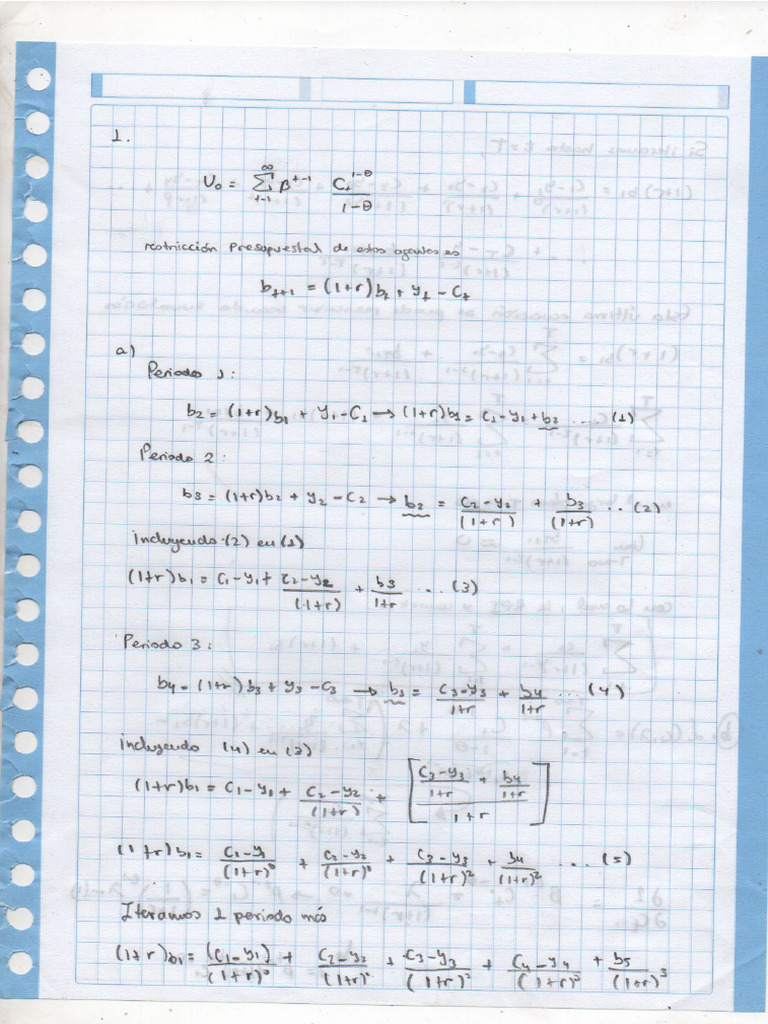 1.
U₀ = ∑_{t=1}^{∞} β^{t-1} C_t^{1-θ} / 1-θ
restricción Presupuestal de estos agentes es
b_{t+1} = (1+r)b_t + y_t - C_t
a)
Periodo 1:
b₂ = (1+r)b₁ + y₁ - C₁ → (1+r)b₁ = C₁ - y₁ + b₂ .... (1)
Periodo 2:
b₃ = (1+r)b₂ + y₂ - C₂ → b₂ = C₂-y₂/(1+r) + b₃/(1+r) .. (2)
incluyendo (2) en (1)
(1+r)b₁ = C₁ - y₁ + C₂-y₂/(1+r) + b₃/1+r .... (3)
Periodo 3:
b₄ = (1+r)b₃ + y₃ - C₃ → b₃ = C₃-y₃/1+r + b₄/1+r ... (4)
incluyendo (4) en (3)
(1+r)b₁ = C₁ - y₁ + C₂-y₂/(1+r) + [C₃-y₃/1+r + b₄/1+r / 1+r]
(1+r)b₁ = C₁-y₁/(1+r)⁰ + C₂-y₂/(1+r)¹ + C₃-y₃/(1+r)² + b₄/(1+r)² ... (5)
Iteramos 1 periodo más
(1+r)b₁ = (C₁-y₁)/(1+r)⁰ + C₂-y₂/(1+r)¹ + C₃-y₃/(1+r)² + C₄-y₄/(1+r)³ + b₅/(1+r)³